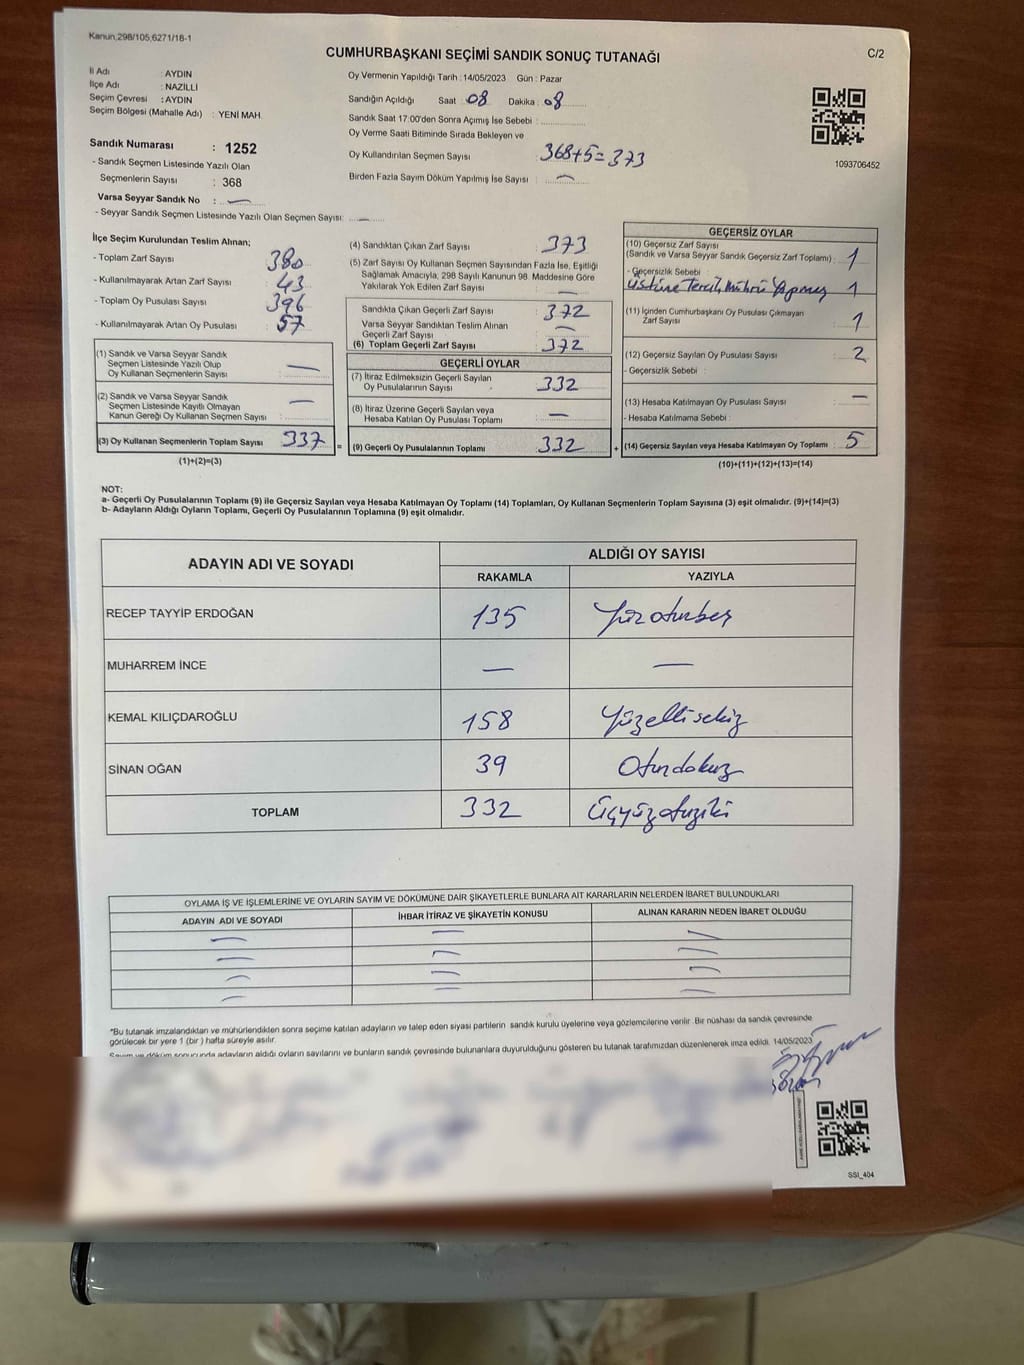 Kanun.298/105,6271/18-1
CUMHURBAŞKANI SEÇİMİ SANDIK SONUÇ TUTANAĞI
C/2
İl Adı : AYDIN
İlçe Adı : NAZİLLİ
Seçim Çevresi : AYDIN
Seçim Bölgesi (Mahalle Adı) : YENİ MAH.
Sandık Numarası : 1252
- Sandık Seçmen Listesinde Yazılı Olan
Seçmenlerin Sayısı : 368
Varsa Seyyar Sandık No : —
- Seyyar Sandık Seçmen Listesinde Yazılı Olan Seçmen Sayısı: —
Oy Vermenin Yapıldığı Tarih : 14/05/2023 Gün : Pazar
Sandığın Açıldığı Saat : 08 Dakika : 08
Sandık Saat 17:00'den Sonra Açımış İse Sebebi :
Oy Verme Saati Bitiminde Sırada Bekleyen ve
Oy Kullandırılan Seçmen Sayısı : 368+5=373
Birden Fazla Sayım Döküm Yapılmış İse Sayısı : —
1093706452
İlçe Seçim Kurulundan Teslim Alınan;
- Toplam Zarf Sayısı : 380
- Kullanılmayarak Artan Zarf Sayısı : 43
- Toplam Oy Pusulası Sayısı : 396
- Kullanılmayarak Artan Oy Pusulası : 57
(1) Sandık ve Varsa Seyyar Sandık
Seçmen Listesinde Yazılı Olup
Oy Kullanan Seçmenlerin Sayısı : —
(2) Sandık ve Varsa Seyyar Sandık
Seçmen Listesinde Kayıtlı Olmayan
Kanun Gereği Oy Kullanan Seçmen Sayısı : —
(3) Oy Kullanan Seçmenlerin Toplam Sayısı : 337 =
(1)+(2)=(3)
(4) Sandıktan Çıkan Zarf Sayısı : 373
(5) Zarf Sayısı Oy Kullanan Seçmen Sayısından Fazla İse, Eşitliği
Sağlamak Amacıyla, 298 Sayılı Kanunun 98. Maddesine Göre
Yakılarak Yok Edilen Zarf Sayısı : —
Sandıkta Çıkan Geçerli Zarf Sayısı : 372
Varsa Seyyar Sandıktan Teslim Alınan
Geçerli Zarf Sayısı : —
(6) Toplam Geçerli Zarf Sayısı : 372
GEÇERLİ OYLAR
(7) İtiraz Edilmeksizin Geçerli Sayılan
Oy Pusulalarının Sayısı : 332
(8) İtiraz Üzerine Geçerli Sayılan veya
Hesaba Katılan Oy Pusulaları Toplamı : —
(9) Geçerli Oy Pusulalarının Toplamı : 332 +
GEÇERSİZ OYLAR
(10) Geçersiz Zarf Sayısı
(Sandık ve Varsa Seyyar Sandık Geçersiz Zarf Toplamı) : 1
- Geçersizlik Sebebi :
Üstüne Tercih Mührü Yapmış 1
(11) İçinden Cumhurbaşkanı Oy Pusulası Çıkmayan
Zarf Sayısı : 1
(12) Geçersiz Sayılan Oy Pusulası Sayısı : 2
- Geçersizlik Sebebi :
(13) Hesaba Katılmayan Oy Pusulası Sayısı : —
- Hesaba Katılmama Sebebi :
(14) Geçersiz Sayılan veya Hesaba Katılmayan Oy Toplamı : 5
(10)+(11)+(12)+(13)=(14)
NOT:
a- Geçerli Oy Pusulalarının Toplamı (9) ile Geçersiz Sayılan veya Hesaba Katılmayan Oy Toplamı (14) Toplamları, Oy Kullanan Seçmenlerin Toplam Sayısına (3) eşit olmalıdır. (9)+(14)=(3)
b- Adayların Aldığı Oyların Toplamı, Geçerli Oy Pusulalarının Toplamına (9) eşit olmalıdır.
ADAYIN ADI VE SOYADI
ALDIĞI OY SAYISI
RAKAMLA YAZIYLA
RECEP TAYYİP ERDOĞAN 135 Yüzotuzbeş
MUHARREM İNCE — —
KEMAL KILIÇDAROĞLU 158 Yüzellisekiz
SİNAN OĞAN 39 Otuzdokuz
TOPLAM 332 Üçyüzotuziki
OYLAMA İŞ VE İŞLEMLERİNE VE OYLARIN SAYIM VE DÖKÜMÜNE DAİR ŞİKAYETLERLE BUNLARA AİT KARARLARIN NELERDEN İBARET BULUNDUKLARI
ADAYIN ADI VE SOYADI İHBAR İTİRAZ VE ŞİKAYETİN KONUSU ALINAN KARARIN NEDEN İBARET OLDUĞU
*Bu tutanak imzalandıktan ve mühürlendikten sonra seçime katılan adayların ve talep eden siyasi partilerin sandık kurulu üyelerine veya gözlemcilerine verilir. Bir nüshası da sandık çevresinde
görülecek bir yere 1 (bir ) hafta süreyle asılır.
Sayım ve döküm sonucunda adayların aldığı oyların sayılarını ve bunların sandık çevresinde bulunanlara duyurulduğunu gösteren bu tutanak tarafımızdan düzenlenerek imza edildi. 14/05/2023
SSI_404